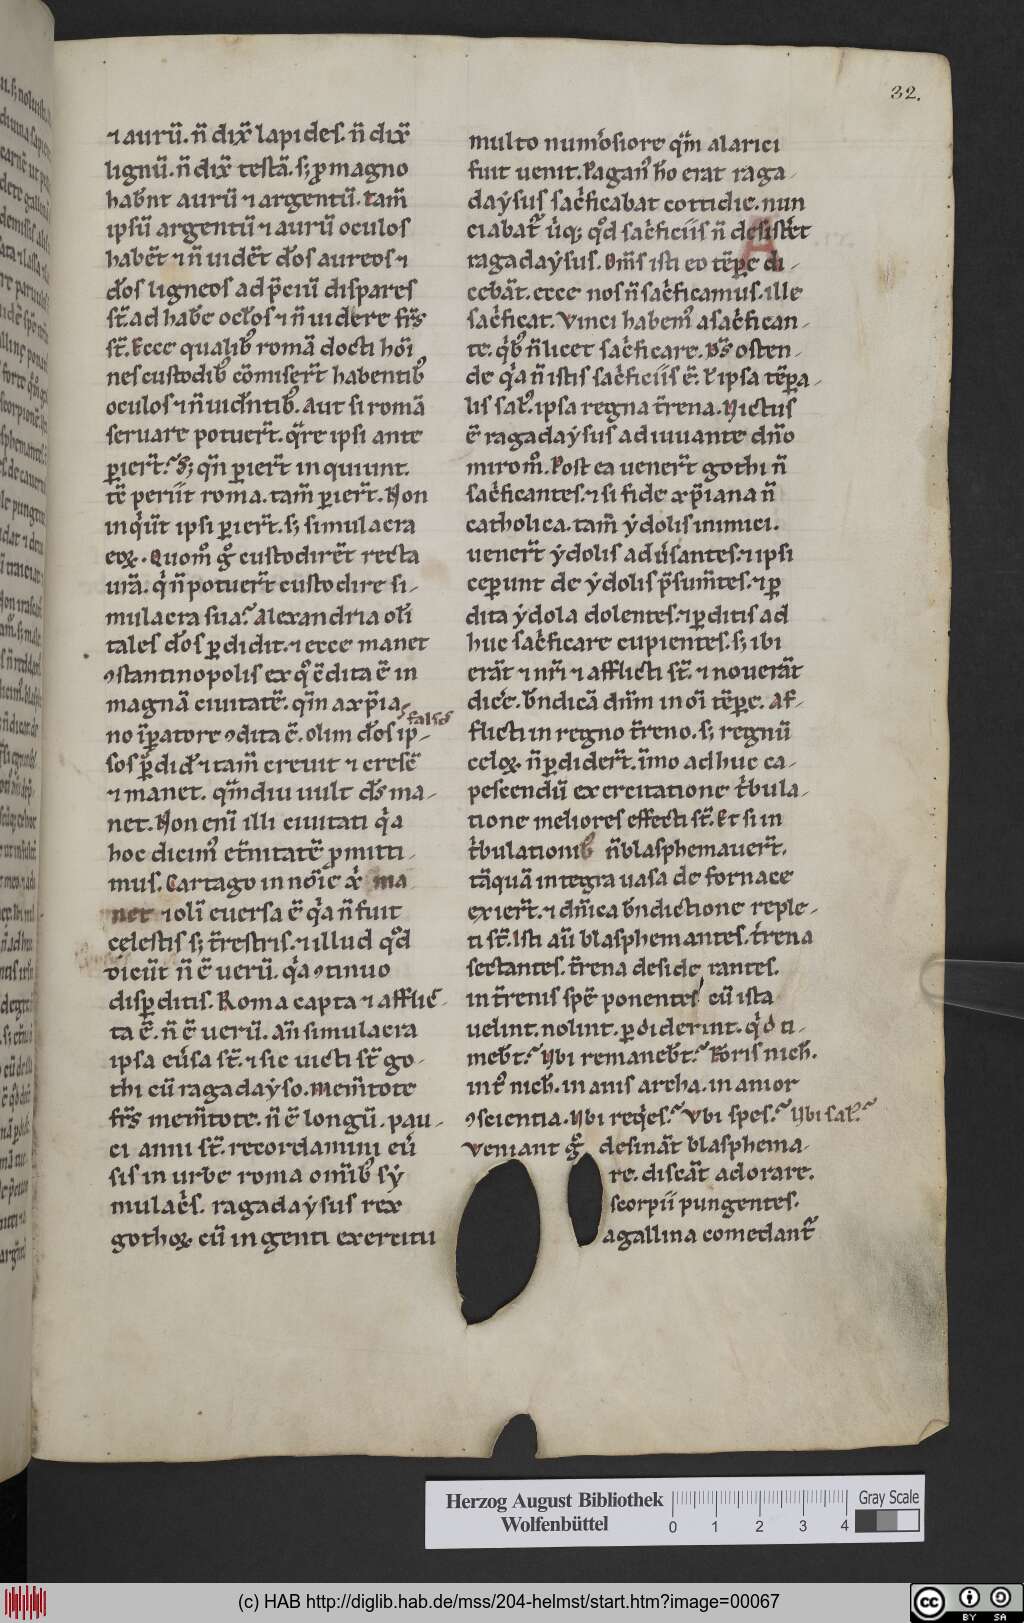 32.
⁊ aurū. n̄ dix̄ lapides. n̄ dix̄
lignū. n̄ dix̄ testā. s; ꝓ magno
hab̄nt aurū ⁊ argentū. tam̄
ipsū argentū ⁊ aurū oculos
habēt ⁊ n̄ uidēt d̄os aureos ⁊
d̄os ligneos ad p̄ciū dispares
st̄. ad hab̄e ocl̄os ⁊ n̄ uidere fr̄s
st̄. Ecce qualib᷒ romā docti hōi
nes custodib᷒ cōmiser̄t habentib᷒
oculos ⁊ n̄ uid̄ntib᷒. Aut si romā
seruare potuer̄t. q̄re ipsi ante
ꝑier̄t? S; qn̄ ꝑier̄t inquiunt.
tē periit roma. tam̄ ꝑier̄t. Non
inqͥūt ipsi ꝑier̄t. s; simulacra
eoꝝ. Quom̊ gͦ custodirēt recta
uirā. qͥ n̄ potuer̄t custodire si-
mulacra sua? Alexandria oli̅
tales d̄os ꝑdidit. ⁊ ecce manet
ꝯstantinopolis ex qͦ c̄dita ē in
magnā ciuitatē. qm̄ a xp̄ia
no īꝑatore ꝯdita ē. olim d̄os ip- falsos
sos ꝑdid̄ ⁊ tam̄ creuit ⁊ cresc̄
⁊ manet. qm̄diu uult d̄s ma-
net. Non eni̅ illi ciuitati qͥa
hoc dicim᷒ et̄nitatē ꝓmitti-
mus. Cartago in nōie xͥ ma
net ⁊ oli̅ euersa ē qͥa n̄ fuit
cęlestis s; t̄restris. ⁊ illud qͦd
dicūt n̄ ē uerū. qͥa ꝯtinuo
disꝑditis. Roma capta ⁊ afflic̄-
ta ē. n̄ ē uerū. an̄ simulacra
ipsa eūsa st̄. ⁊ sic uicti st̄ go-
thi cū ragadaẏso. Mem̄tote
fr̄s mem̄tote. n̄ ē longū. pau-
ci anni st̄. recordamini eū
sis in urbe roma omib᷒ sẏ
mulac̄s. ragadaẏsus rex
gothoꝝ cū ingenti exercitu
multo num̄osiore qm̄ alarici
fuit uenit. Pagan᷒ h̄o erat raga-
daẏsus sacͥficabat cottidie. nun
ciabat᷑ ūq; qͦd sacͥficiis n̄ desist̄et
ragadaẏsus. Om̄s isti eo tēꝑe di-
cebāt. ecce nos n̄ sacͥficamus. ille
sacͥficat. Vinci habem᷒ a sacͥfican-
te. qͥb᷒ n̄ licet sacͥficare. Ds̄ osten-
de qͥa n̄ istis sacͥficiis ē. ł ipsa tēꝑa-
lis sal᷒. ipsa regna t̄rena. Victus
ē ragadaẏsus adiuuante dn̄o
mirom̊. Post ea uener̄t gothi n̄
sacͥficantes. ⁊ si fide xp̄iana n̄
catholica. tam̄ ẏdolis inimici.
uener̄t ẏdolis adūsantes. ⁊ ipsi
ceꝑunt de ẏdolis p̄sum̄tes. ⁊ ꝑ
dita ẏdola dolentes. ⁊ ꝑditis ad
huc sacͥficare cupientes. s; ibi
erāt ⁊ nr̄i ⁊ afflicti st̄. ⁊ nouerāt
dic̄e. b̄ndicā dn̄m in oi̅ tēꝑe. Af-
flicti in regno t̄reno. s; regnū
celoꝝ n̄ ꝑdider̄t. īmo adhuc ca-
pescendū exercitatione tͥbula-
tione meliores effecti st̄. Et si in
tͥbulationib᷒ n̄ blasphemauer̄t.
tāquā integra uasa de fornace
exier̄t. ⁊ dn̄ica b̄ndictione reple-
ti st̄. Isti au̅ blasphemantes. t̄rena
sectantes. t̄rena deside rantes.
in t̄renis spē ponentes cū ista
uelint. nolint. ꝑdiderint. qͥd ti-
meb̄t? Vbi remaneb̄t? Foris nich̄.
int᷒ nich̄. inanis archa. inanior
ꝯscientia. Vbi req̄es? Vbi spes? Vbi sal᷒?
Veniant gͦ desināt blasphema-
re. discāt adorare.
scorpii pungentes.
a gallina comedant᷑
Herzog August Bibliothek
Wolfenbüttel
0 1 2 3 4
Gray Scale
(c) HAB http://diglib.hab.de/mss/204-helmst/start.htm?image=00067
cc BY SA